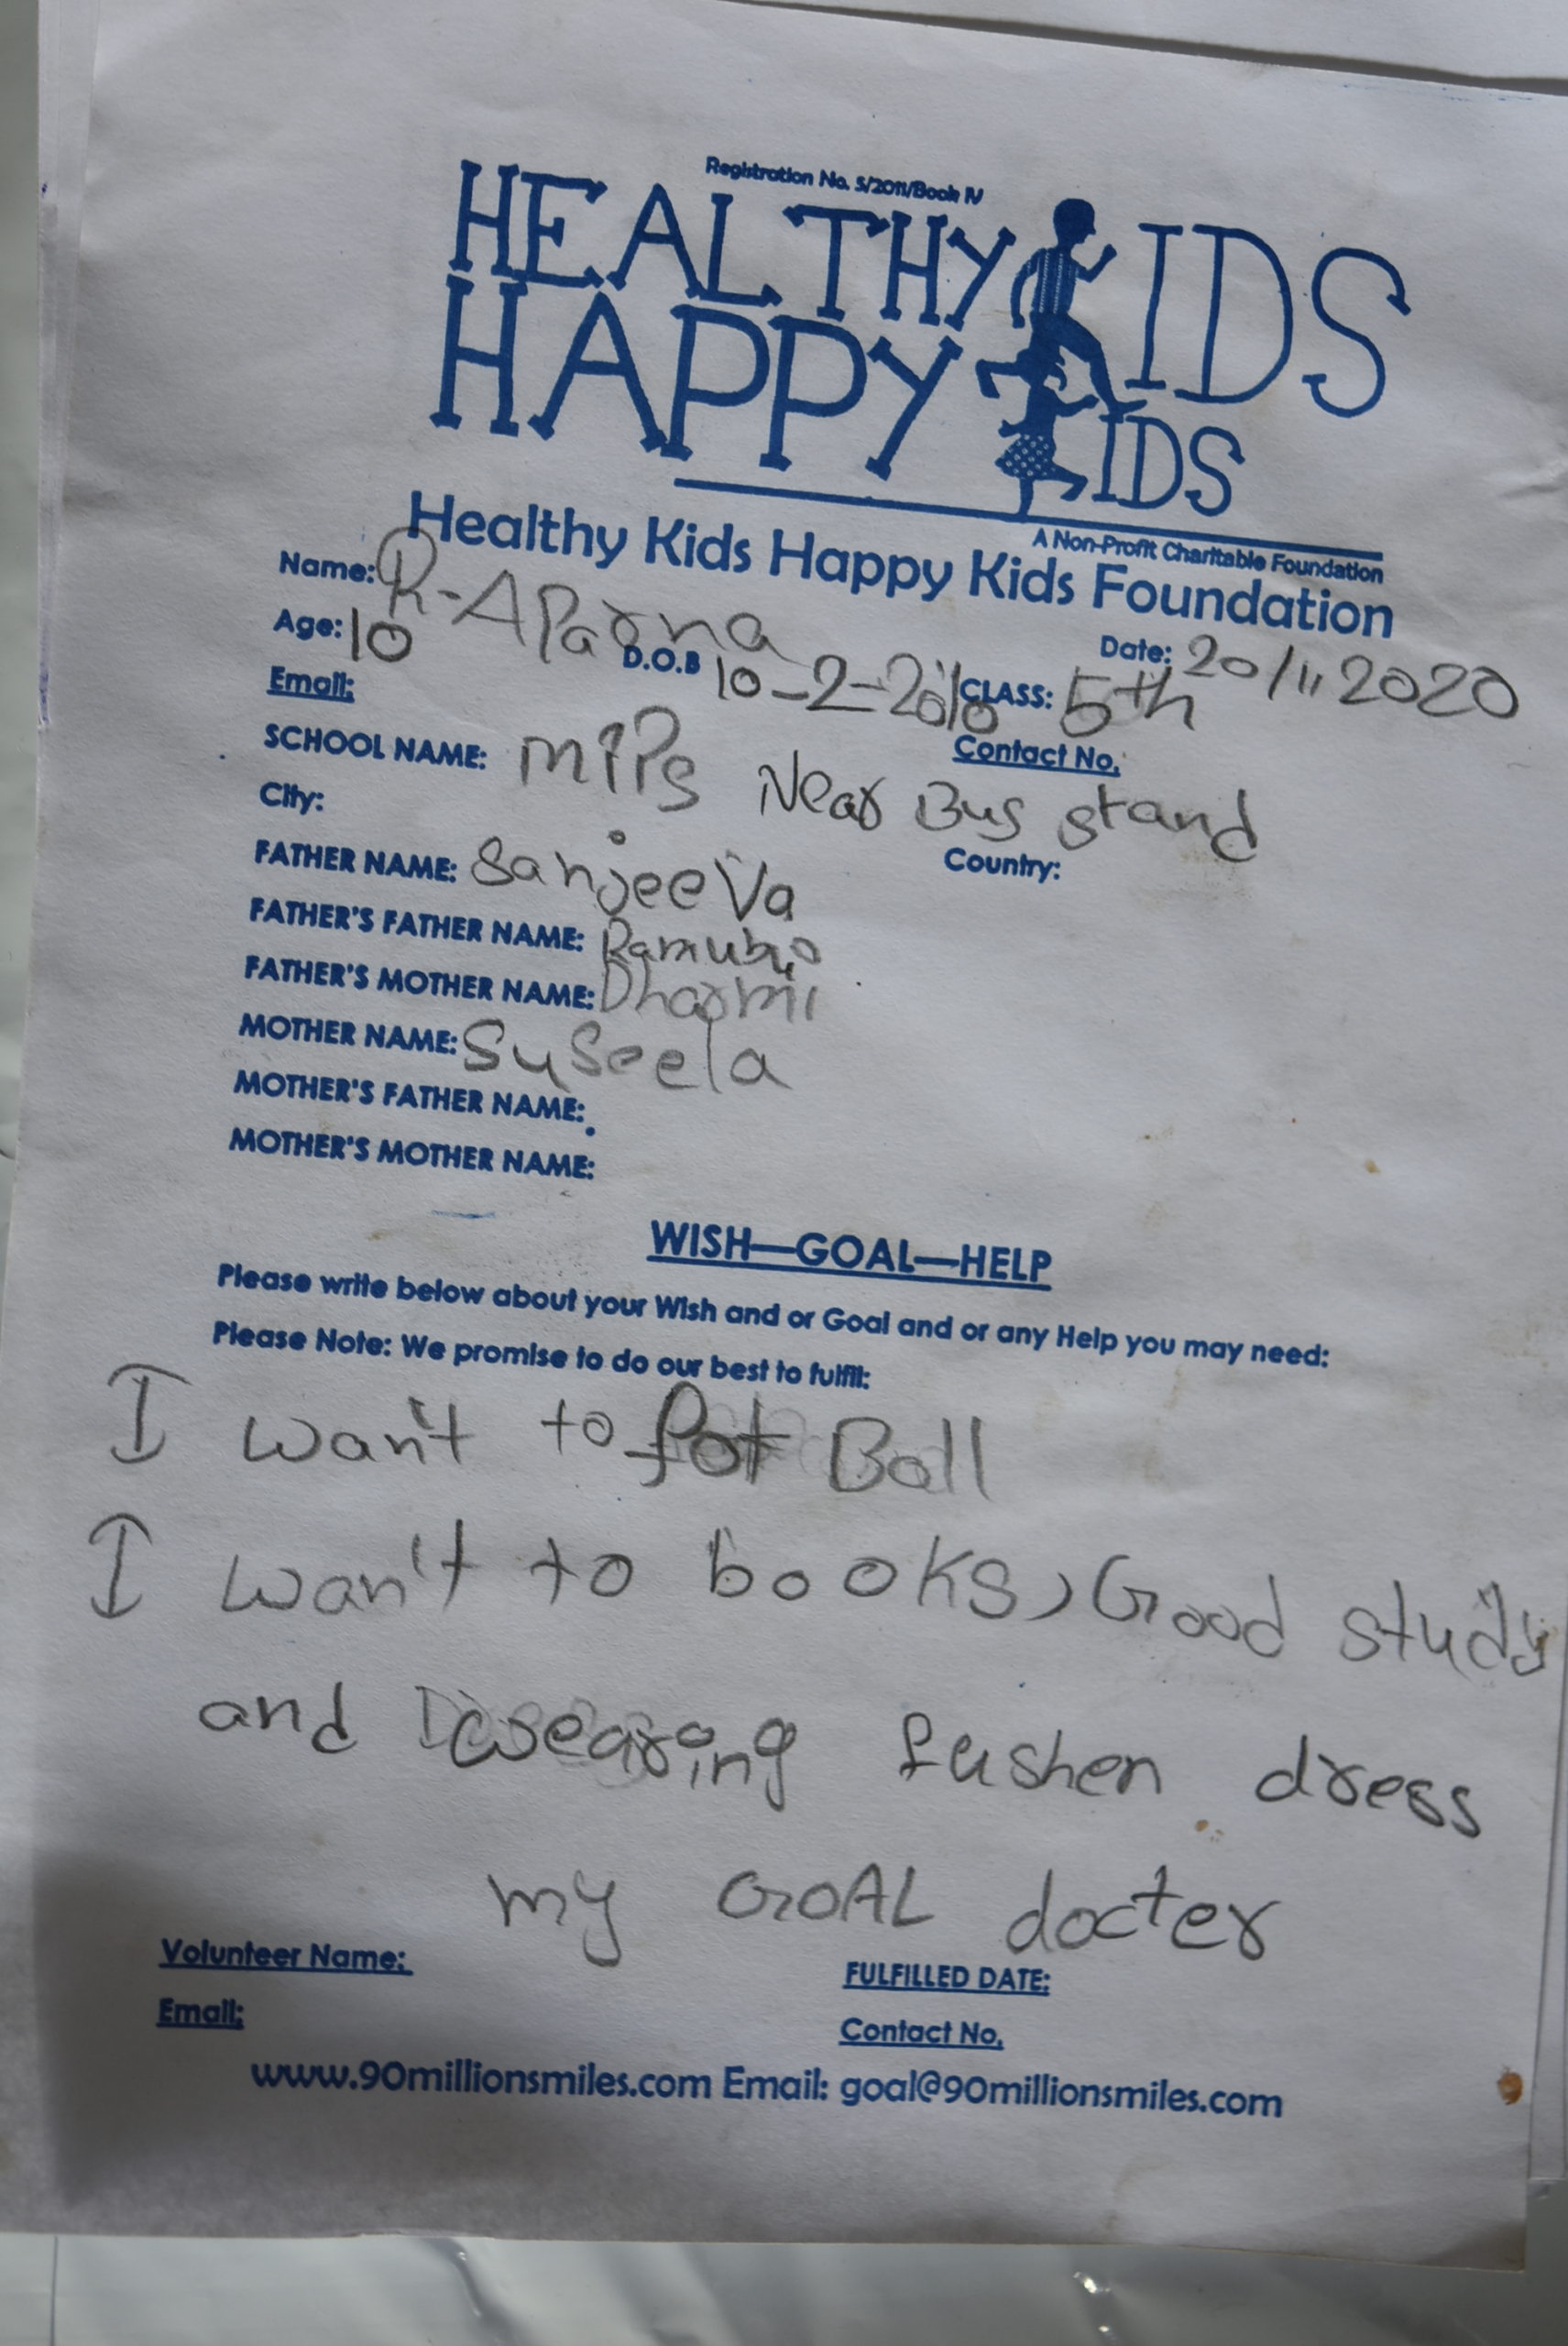 Registration No. 5/2011/Book IV
HEALTHY KIDS
HAPPY KIDS
A Non-Profit Charitable Foundation
Healthy Kids Happy Kids Foundation
Name: R-AParna
Date: 20/11 2020
Age: 10 D.O.B 10-2-2010 CLASS: 5th
Email: Contact No.
SCHOOL NAME: Near Bus stand
City: Country:
FATHER NAME: SanjeeVa
FATHER'S FATHER NAME:
FATHER'S MOTHER NAME: Dharmi
MOTHER NAME: SuSeela
MOTHER'S FATHER NAME:
MOTHER'S MOTHER NAME:
WISH—GOAL—HELP
Please write below about your Wish and or Goal and or any Help you may need:
Please Note: We promise to do our best to fulfil:
I wan't to fot Ball
I wan't to books, Good study
and wearing fushen dress
my GOAL docter
Volunteer Name: FULFILLED DATE:
Email: Contact No.
www.90millionsmiles.com Email: goal@90millionsmiles.com